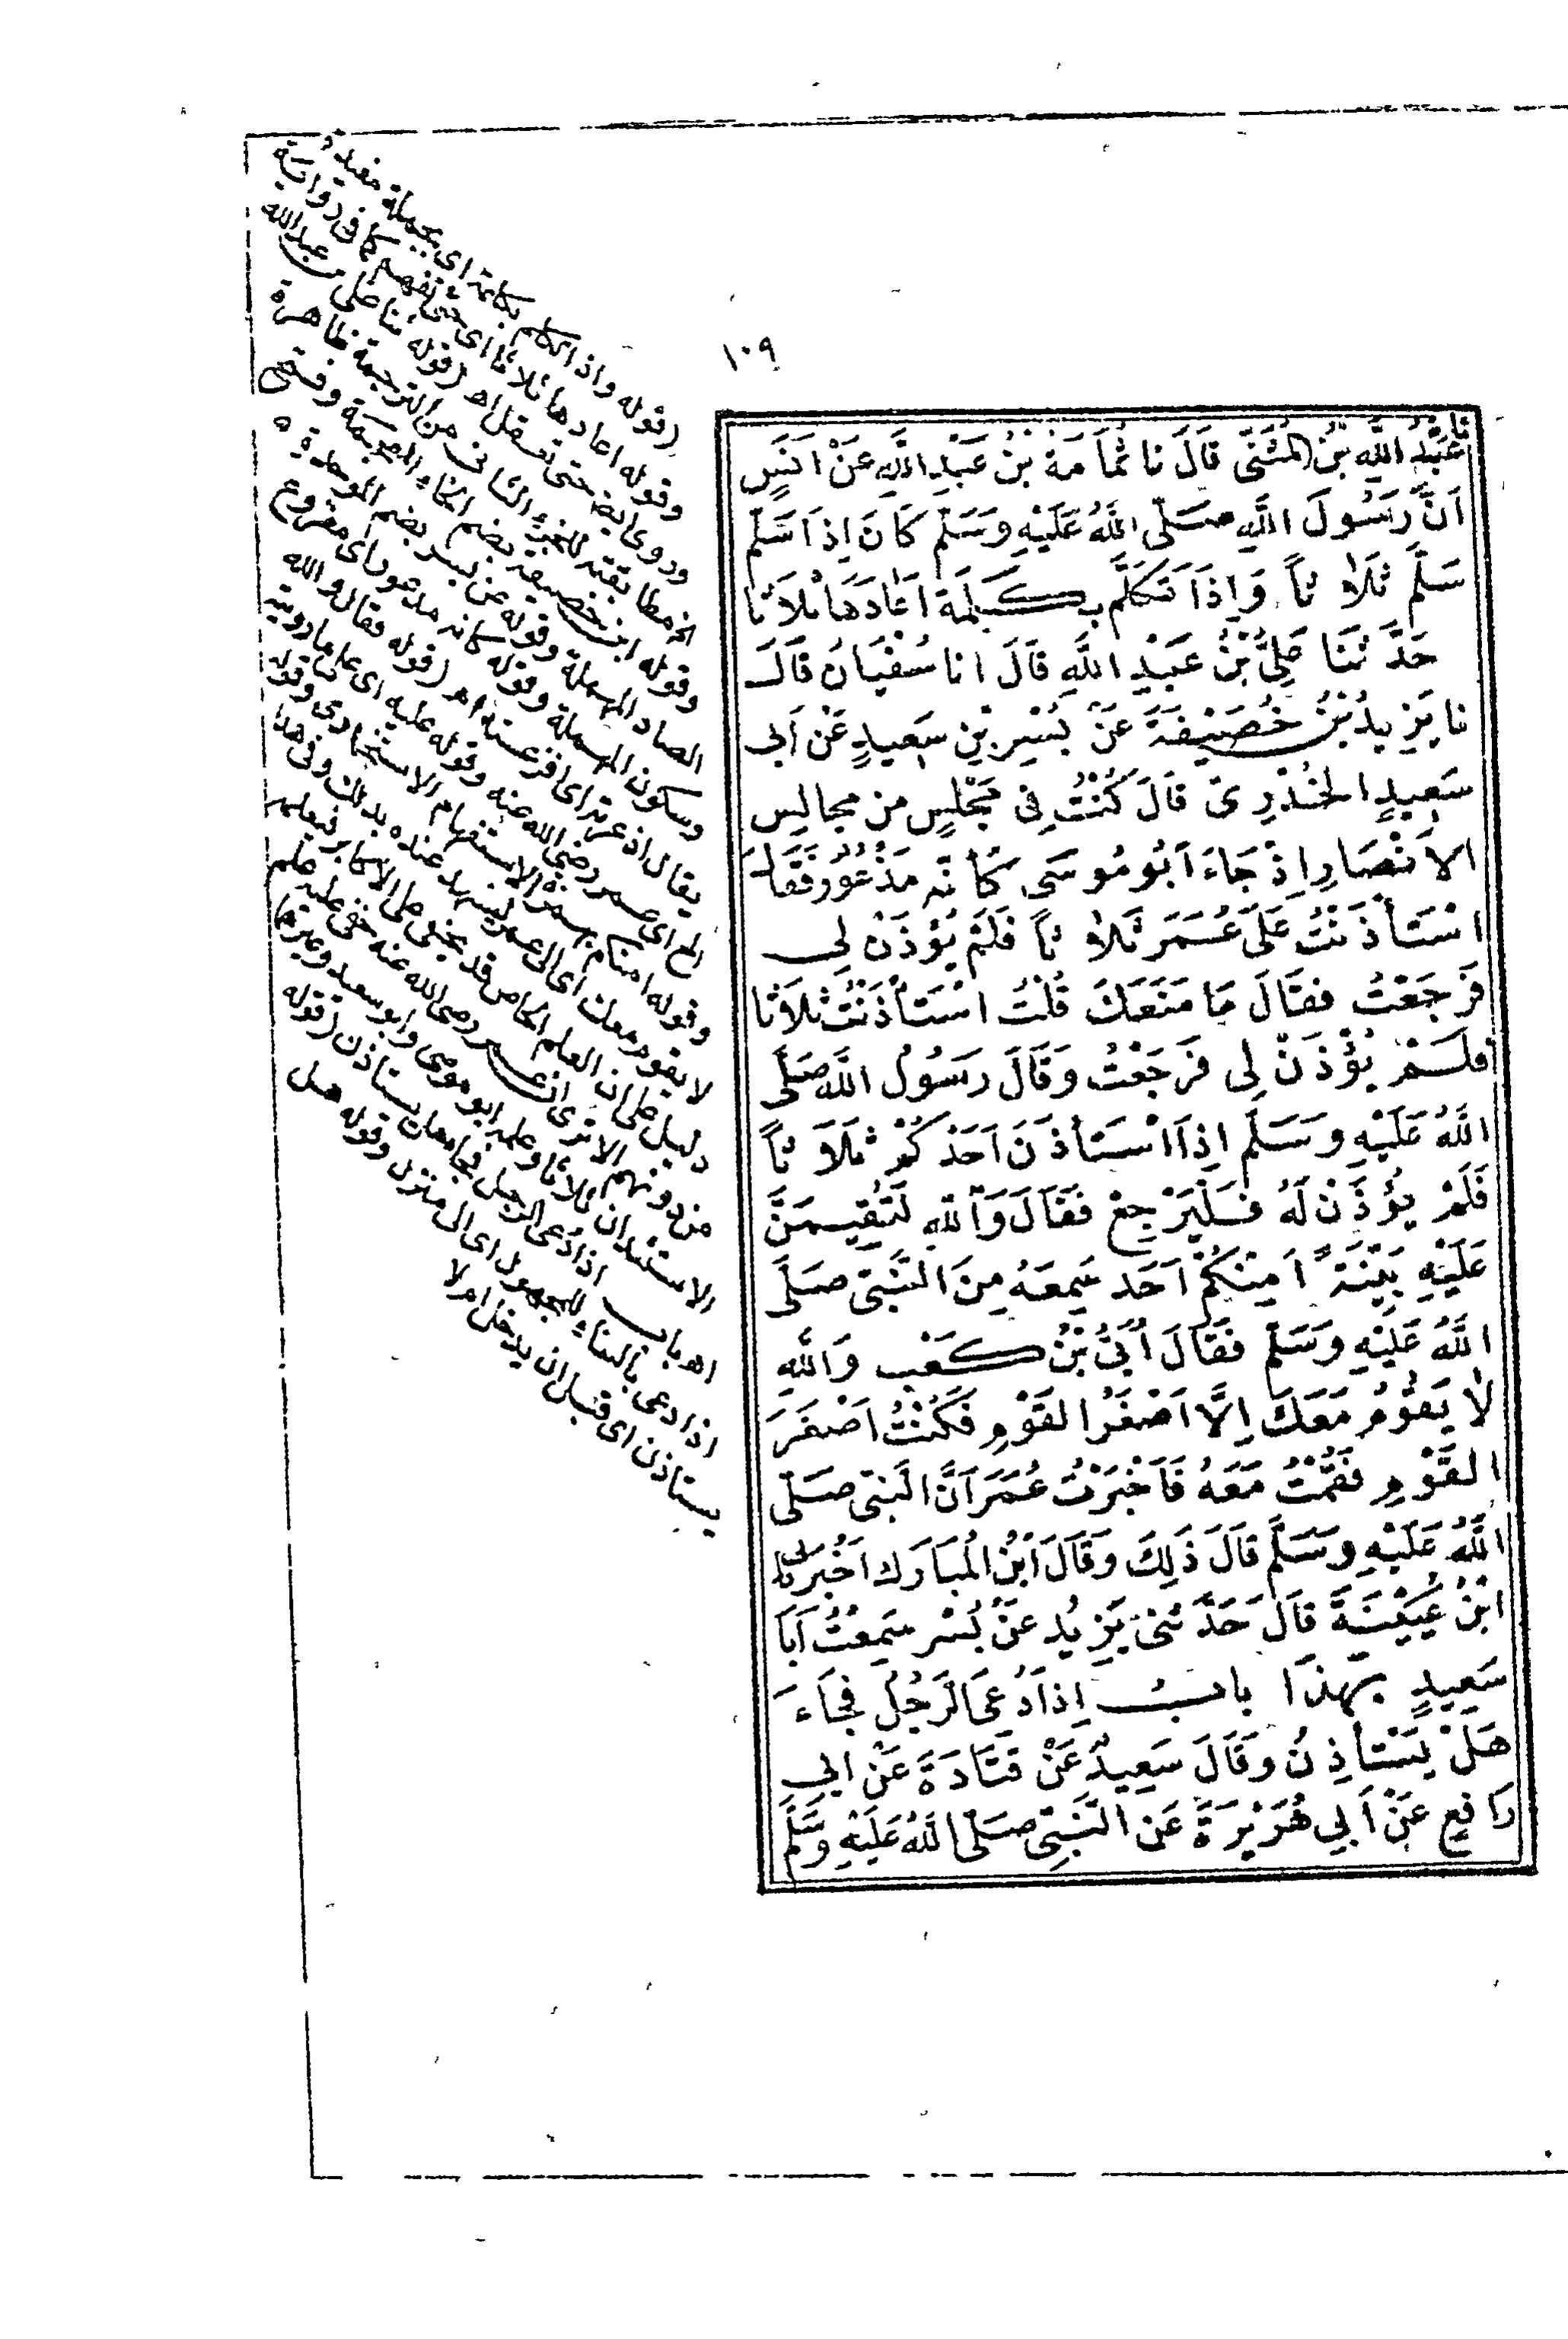 ١٠٩
نا
عَبْدُ اللَّهِ بْنُ الْمُثَنَّى قَالَ نا ثُمَامَةُ بْنُ عَبْدِ اللَّهِ عَنْ اَنَسٍ
اَنَّ رَسُولَ اللَّهِ صَلَّى اللَّهُ عَلَيْهِ وَسَلَّمَ كَانَ اِذَا سَلَّمَ
سَلَّمَ ثَلَاثاً وَاِذَا تَكَلَّمَ بِكَلِمَةٍ اَعَادَهَا ثَلَاثًا
حَدَّثَنَا عَلِيُّ بْنُ عَبْدِ اللَّهِ قَالَ انا سُفْيَانُ قَالَ
نا يَزِيدُ بْنُ خُصَيْفَةَ عَنْ بُسْرِ بْنِ سَعِيدٍ عَنْ اَبِى
سَعِيدٍ الخُدْرِىّ قَالَ كُنْتُ فِى مَجْلِسٍ مِن مجالِسِ
الاَنْصَارِ اِذْ جَاءَ اَبُو مُوسَى كَاَنَّهُ مَذْعُورٌ فَقَالَ
اسْتَأْذَنْتُ عَلَى عُمَرَ ثَلَاثاً فَلَمْ يُؤْذَنْ لِى
فَرَجَعْتُ فقَالَ مَا مَنَعَكَ قُلْتُ اسْتَأْذَنْتُ ثَلَاثًا
فلَمْ يُؤْذَنْ لِى فَرَجَعْتُ وَقَالَ رَسُولُ اللَّهِ صَلَّى
اللَّهُ عَلَيْهِ وَسَلَّمَ اِذَا اسْتَأْذَنَ اَحَدُكُمْ ثَلَاثاً
فَلَمْ يُؤْذَنْ لَهُ فَلْيَرْجِعْ فَقَالَ وَاللَّهِ لَتُقِيمَنَّ
عَلَيْهِ بَيِّنَةً اَمِنْكُمْ اَحَد سَمِعَهُ مِنَ النَّبِىّ صَلَّى
اللَّهُ عَلَيْهِ وَسَلَّمَ فَقَالَ اُبَىُّ بْنُ كَعْبٍ وَاللَّهِ
لَا يَقُومُ مَعَكَ اِلَّا اَصْغَرُ القَوْمِ فَكُنْتُ اَصْغَرَ
القَوْمِ فَقُمْتُ مَعَهُ فَاَخْبَرْتُ عُمَرَ اَنَّ النَّبِىّ صَلَّى
اللَّهُ عَلَيْهِ وَسَلَّمَ قَالَ ذَلِكَ وَقَالَ ابْنُ المُبَارَكِ اَخْبَرَنِى
ابْنُ عُيَيْنَةَ قَالَ حَدَّثَنِى يَزِيدُ عَنْ بُسْرٍ سَمِعْتُ اَبَا
سَعِيدٍ بِهَذَا بابُ اِذَا دُعِىَ الرَّجُلُ فَجَاءَ
هَلْ يَسْتَأْذِنُ وَقَالَ سَعِيدٌ عَنْ قَتَادَةَ عَنْ ابِى
رَافِعٍ عَنْ اَبِى هُرَيْرَةَ عَنِ النَّبِىّ صَلَّى اللَّهُ عَلَيْهِ وَسَلَّمَ
(قوله واذا تكلم بكلمة اى بجملة مفيدة
وقوله اعادها ثلاثا اى حتى تفهم كما فى رواية
وروى ايضا حتى تعقل اه (قوله ثنا على بن عبد الله
الخ مطابقته للجزء الثانى من الترجمة ظاهرة
وقوله ابن خصيفة بضم الخاء المعجمة وفتح
الصاد المهملة وقوله عن بسر بضم الموحدة
وسكون المهملة وقوله كانه مذعور اى مفزوع
يقال اذعرته اى افزعته اه (قوله فقال والله
الخ اى عمر رضى الله عنه وقوله عليه اى على ما رويته
وقوله امنكم بهمزة الاستفهام الاستخبارى وقوله
لا يقوم معك اى الى عمر ليشهد عنده بذلك وفى هذا
دليل على ان العلم الخاص قد يخفى على الاكابر فيعلمه
من دونهم الا ترى ان عمر رضى الله عنه خفى عليه علم
الاستئذان ثلاثا وعلمه ابو موسى وابو سعيد وغيرهما
اه باب اذا دعى الرجل فجاء هل يستاذن (قوله
اذا دعى بالبناء للمجهول اى الى منزل وقوله هل
يستاذن اى قبل ان يدخل ام لا